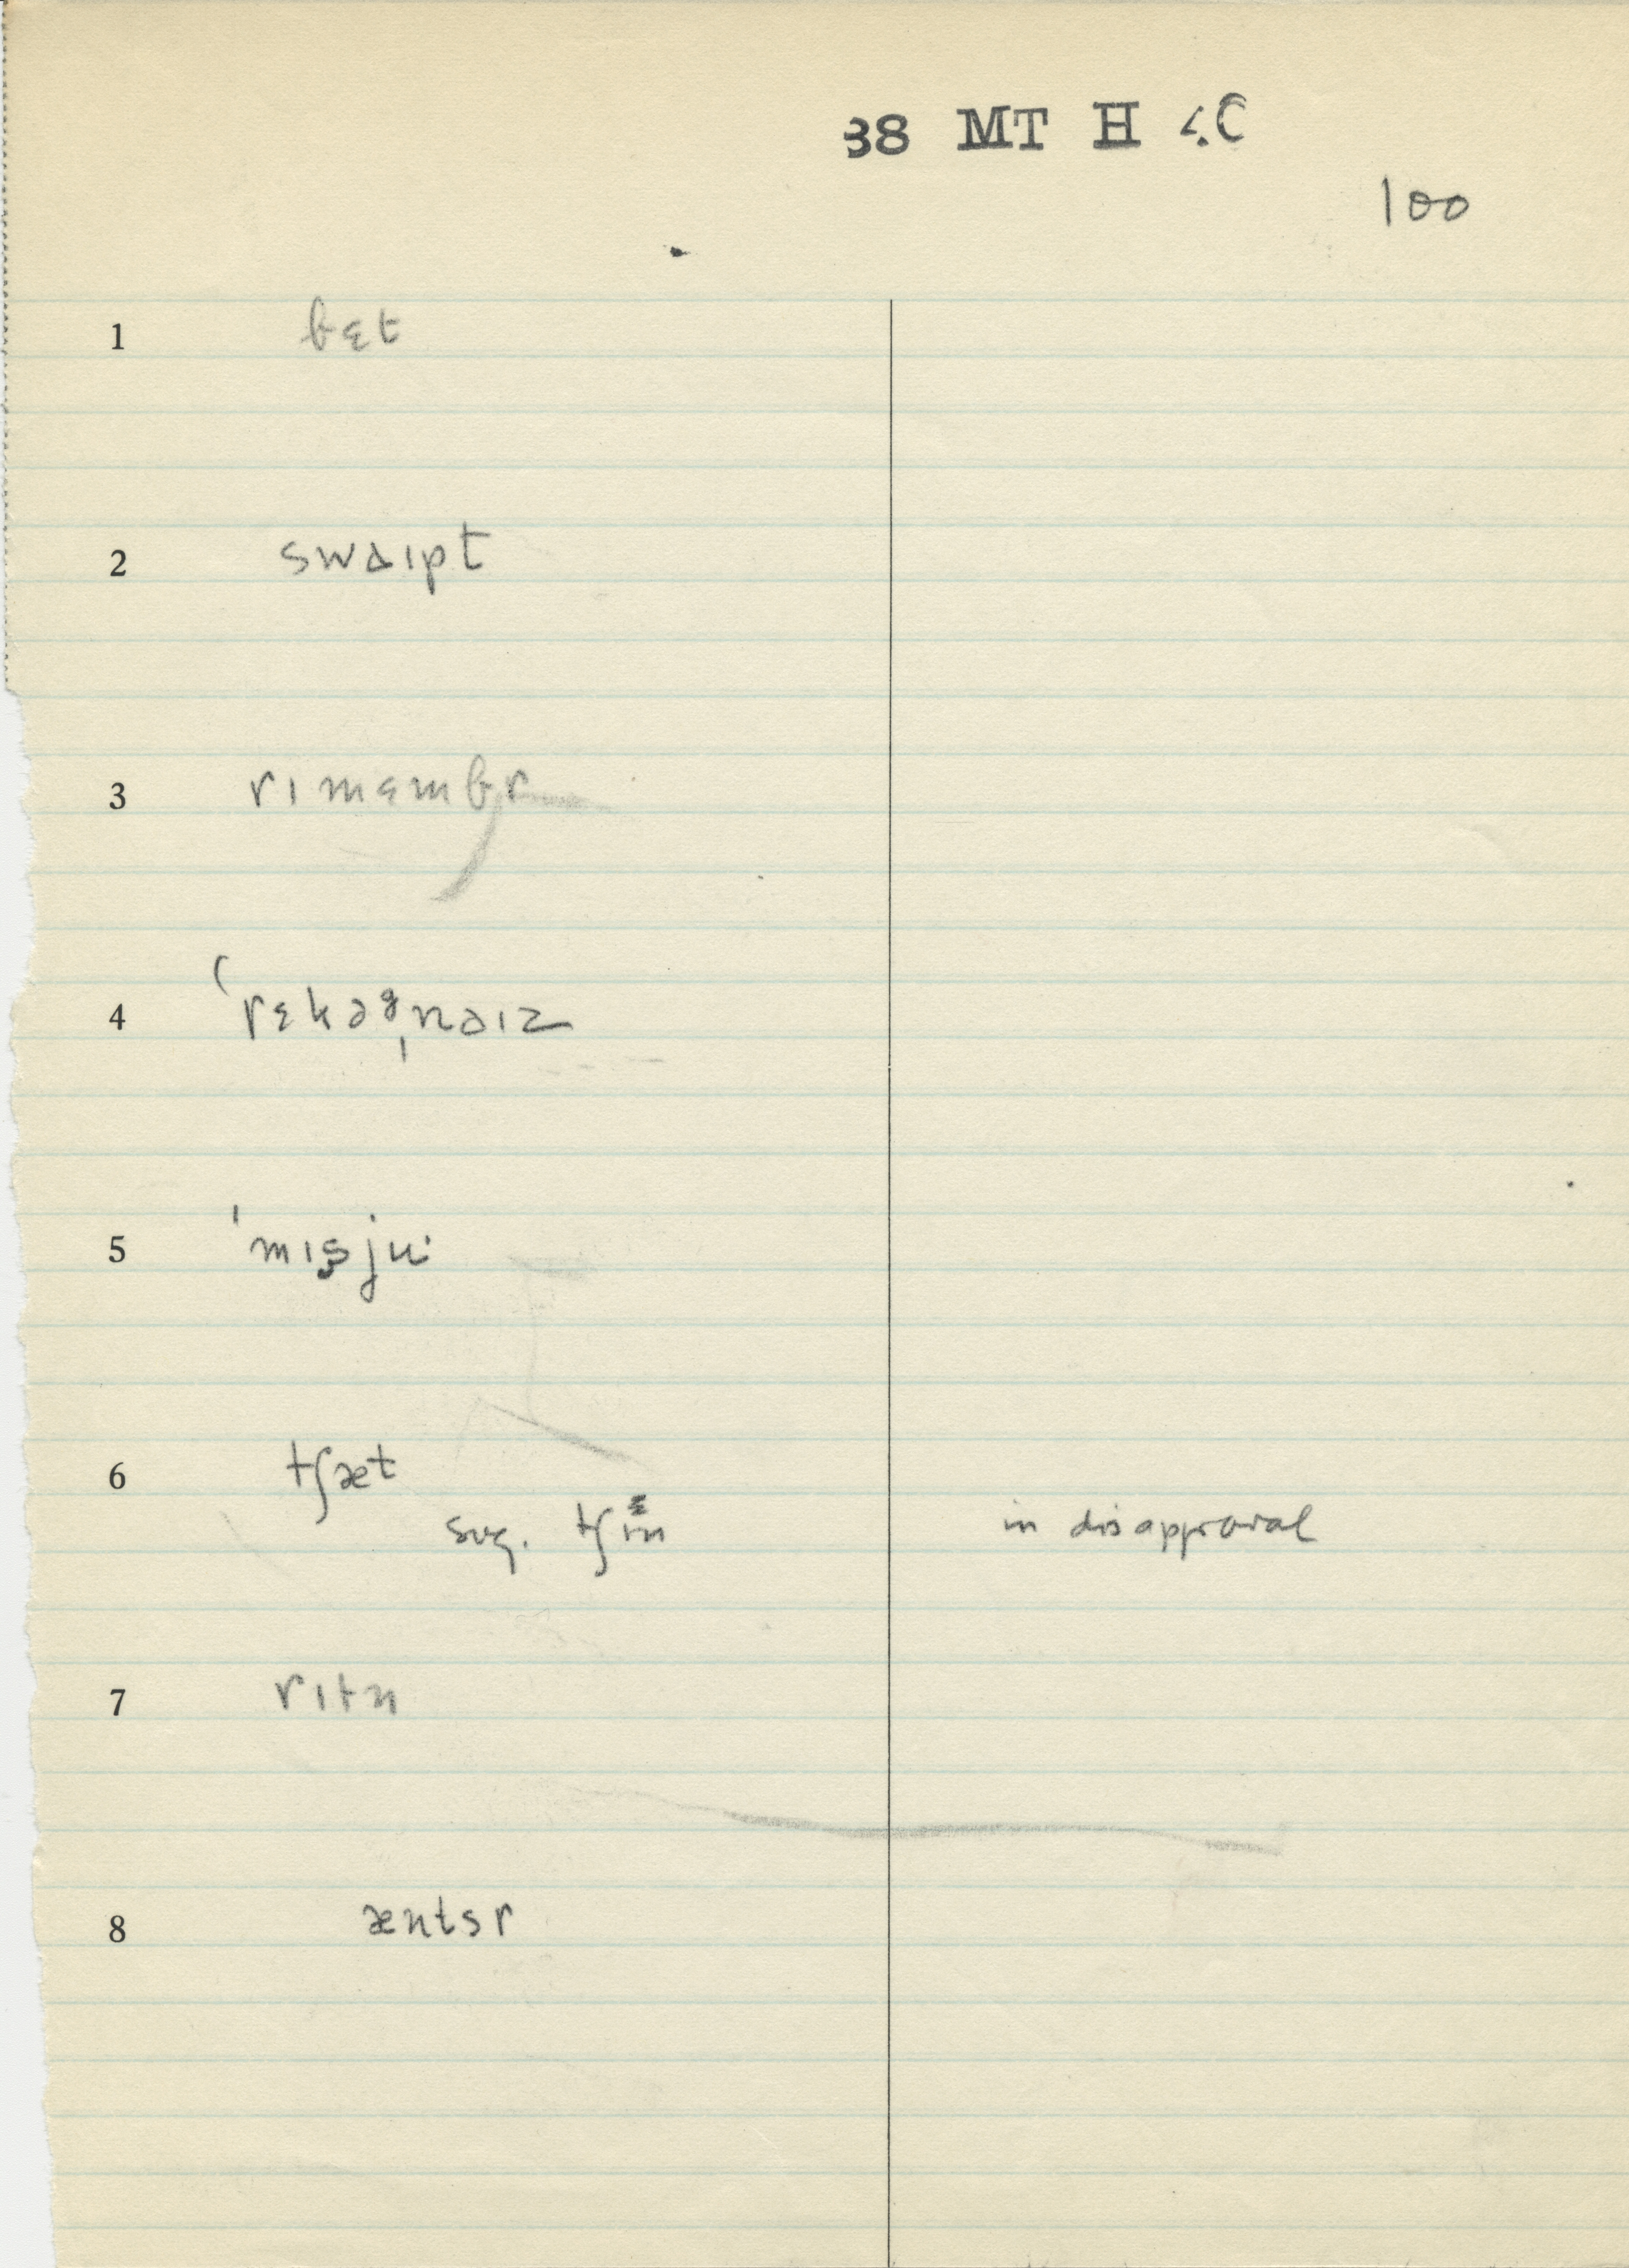 38 MT H 40
100
1 bɛt
2 swaɪpt
3 rɪmɛmbr
4 ˈrɛkəgˌnaɪz
5 ˈmɪs̬juˑ
6 tʃæt
sug. tʃɪn in disapproval
7 rɪtn
8 æntsr